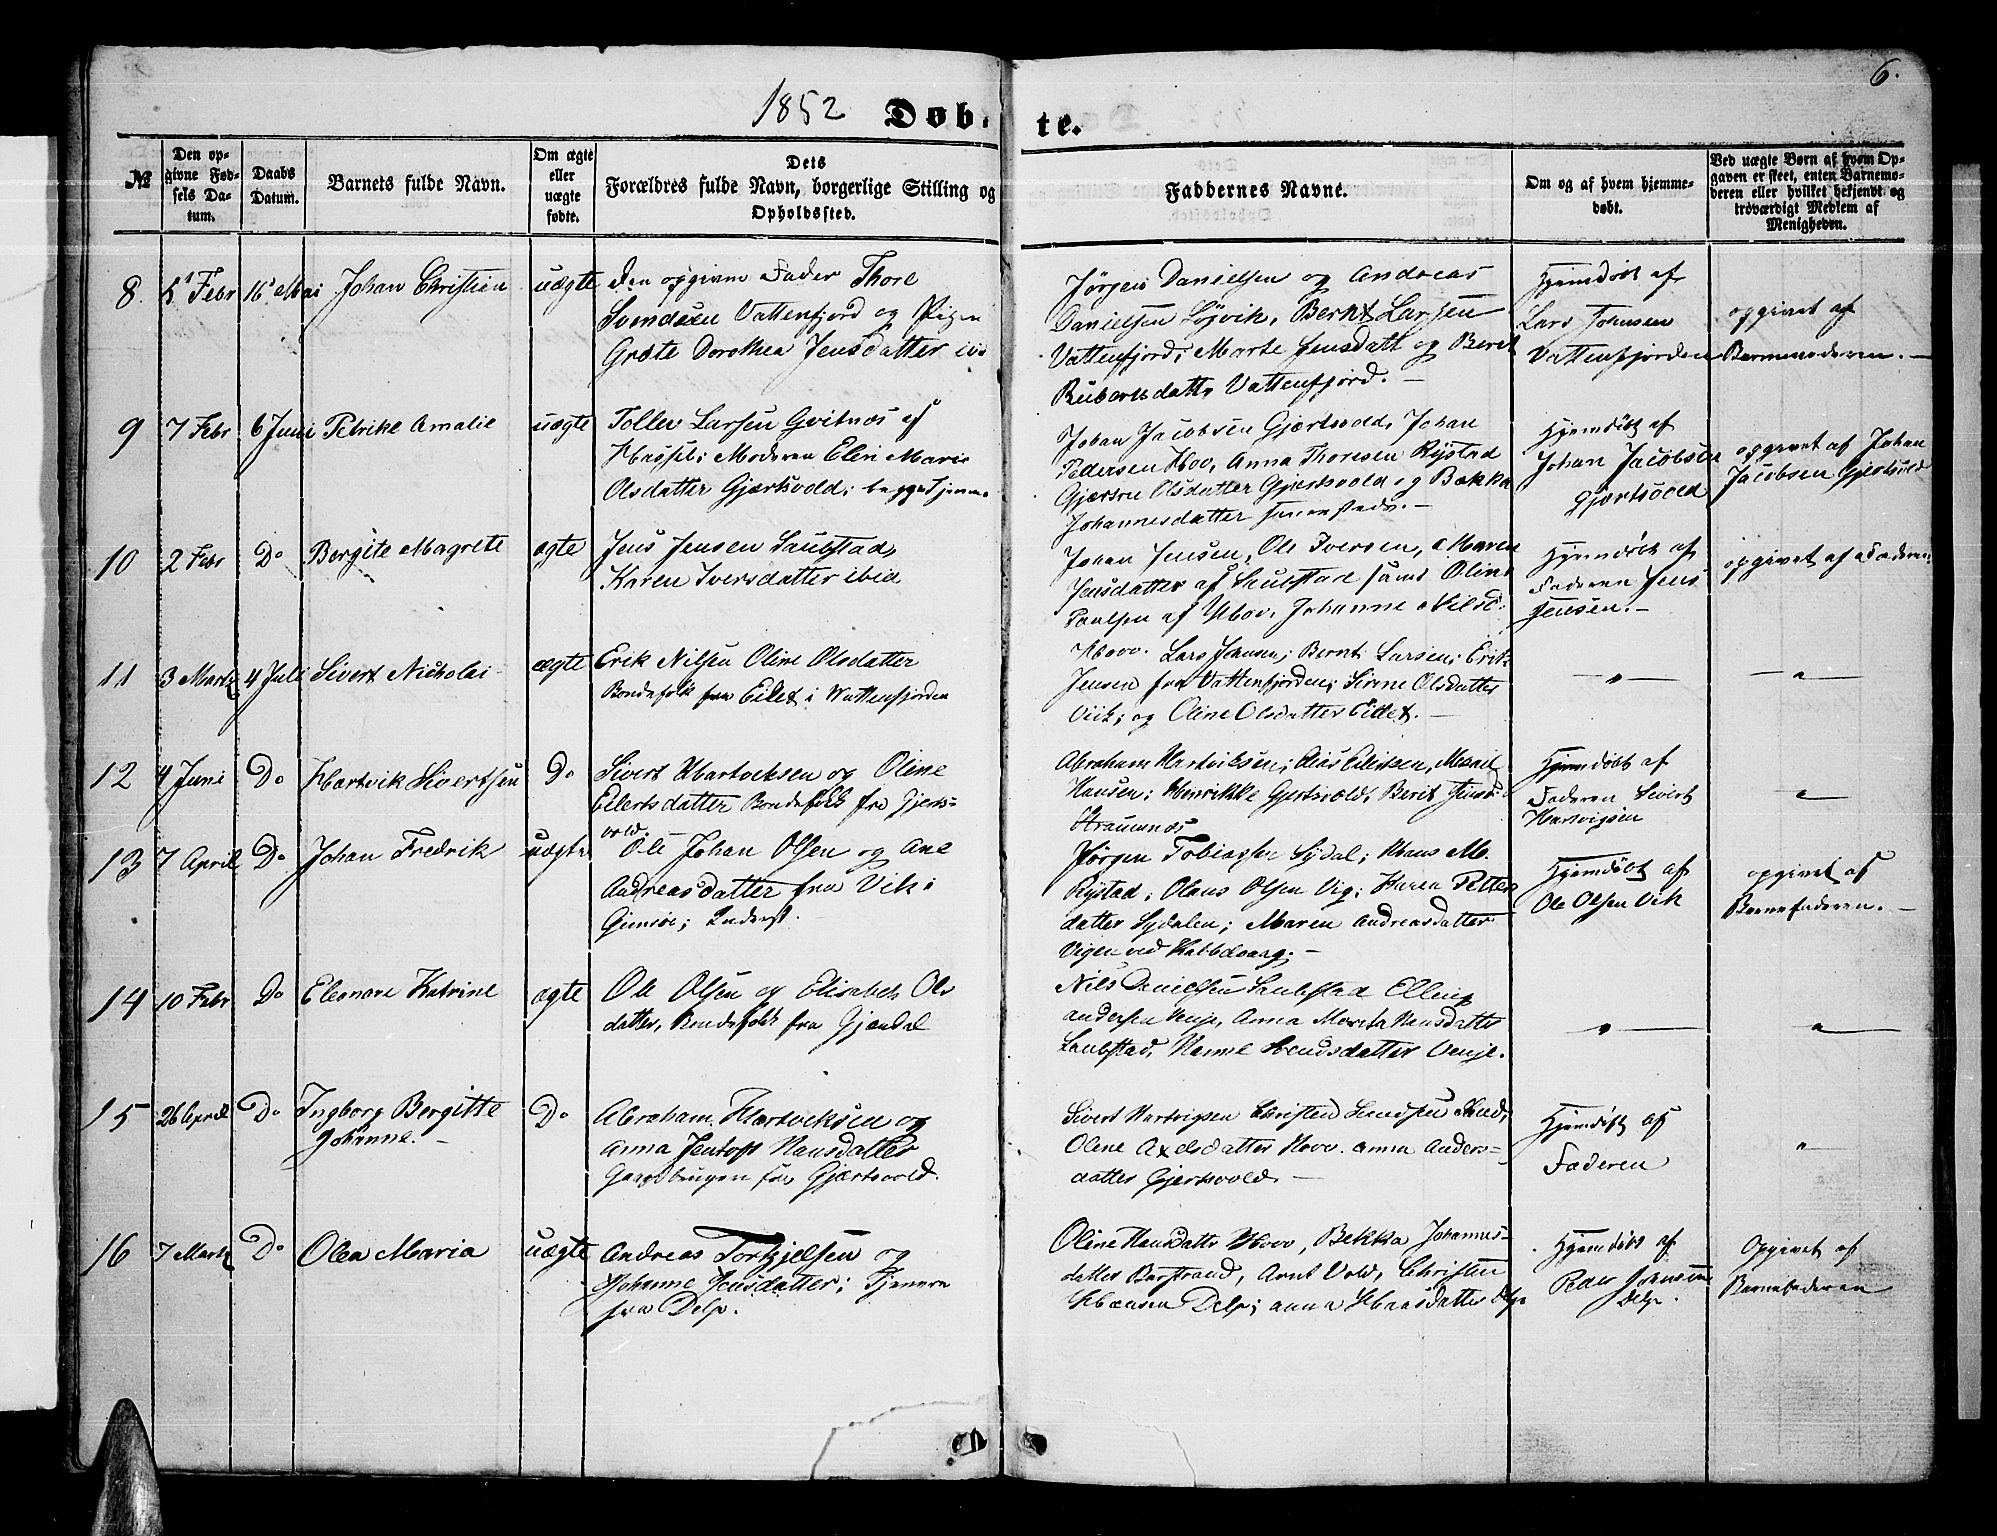 6.
1852 Døb- te.
№
Den op-
givne Fød-
sels Da-
tum.
Daabs
Datum.
Barnets fulde Navn.
Om ægte
eller
uægte
fødte.
Dets
Forældres fulde Navn, borgerlige Stilling og
Opholdssted.
Faddernes Navne.
Om og af hvem hjemme-
døbt.
Ved uægte Børn af hvem Op-
gaven er skeet, enten Barnemo-
deren eller hvilket bekjendt og
troværdigt Medlem af
Menigheden.
8. 5' Febr 16' Mai Johan Christian uægte den opgivne Fader Thore
Svendsen Vattenfjord og Pigen
Grete Dorothea Jensdatter ibid
Jørgen Danielsen og Andreas
Danielsen Løjvik, Bernt Larsen
Vattenfjord; Marte Jensdatt og Beret
Rubertsdattr Vattenfjord. —
Hjemdøbt af
Lars Johnsen
Vattenfjorden
opgivet af
Barnemoderen. —
9 7 Febr 6 Juni Petrike Amalie uægte Tollev Larsen Gvitnes af
Hassel; Moderen Elen Marie
Olsdatter Gjærtsvold; begge tjenne
Johan Jacobsen Gjærtsvold, Johan
Pedersen Hov, Anna Thoresen Rystad
Gjærtru Olsdatter Gjærtsvold og Bekka
Johannesdatter
Hjemdøbt af
Johan Jacobsen
Gjærtsvold
opgivet af Johan
Jacobsen Gjertsvold
10 2 Febr Do Bergite Magrete ægte Jens Jensen Laubstad,
Karen Iversdatter ibid
Johan Jensen, Ole Iversen, Maren
Jensdatter af Laubstad samt Oline
Paulsen af Hov, Johanne Nilsd:
Hov.
Hjemdøbt af
Faderen Jens
Jensen. —
opgivet af Faderen.
11 3 Martz 4 Juli Sivert Nicholai ægte Erik Nilsen Oline Olsdatter
Bondefolk fra Eidet i Vattenfjorden
Lars Johnsen; Bernt Larsen; Erik
Jensen fra Vattenfjorden; Sirene Olsdatter
Viik; og Oline Olsdatter Eidet. —
— " —
— " —
12 4 Juni Do Hartvik Sivertsen Do Sivert Hartviksen og Oline
Eilertsdatter Bondefolk fra Gjerts-
vold.
Abraham Hartviksen; Elias Eilertsen,
Hansen; Henrikke Gjertsvold, Berit Jensd:
Straumnes
Hjemdøbt af
Faderen Sivert
Hartvigsen
"
13 7 April Do Johan Fredrik uægte Ole Johan Olsen og Ane
Andreasdatter fra Vik i
Gimsøe; Inderst. —
Jørgen Tobiassen Sydal; Hans M.
Rystad; Olaus Olsen Vig; Karen Petter
datter Sydalen; Maren Andreasdatter
Vigen ved Kabbelvaag. —
Hjemdøbt af
Ole Olsen Vik
opgivet af
Barnefaderen. —
14 10 Febr Do Eleonore Katrine ægte Ole Olsen og Elisabeth Ols
datter, Bondefolk fra Gjendal
Nils Danielsen Laubstad Elling
Andersen Venje, Anna Marita Hansdatter
Laubstad, Hanne Svendsdatter Venje.
"
"
15 26 April Do Ingborg Bergitte Do Abraham Hartviksen og
Johanne. — Anna Jentoft Hansdatter
Gaardbrugen fra Gjærtsvold.
Sivert Hartvigsen Christen Knudsen Sand,
Oline Axelsdatter Hov. Anna Anders-
datter Gjertsvold. —
Hjemdøbt af
Faderen
"
16 7 Martz Do Olea Maria uægte Andreas Torkjelsen og
Johanne Jensdatter; Tjenere
fra Delp.
Oline Hansdattr Hov, Bekka Johannes-
datter Barstrand, Arnt Vold, Christen
Hansen Delp; Anna Hansdatter Delp
Hjemdøbt af
Peder Johnsen
Delp.
Opgivet af
Barnefaderen